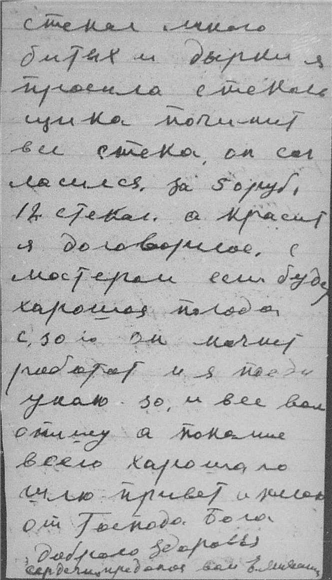 стекол много
битых и дырки я
просила стеколь
щика починит
все стекла, он сог
ласился. за 50 руб,
12 стекол. а красит
я договорилас. с
мастером если будет
харошая погода
с, 30 го он начнит
работат и я
30, и все вам
опишу а покамис
всего харошаго
шлю привет и желаю
от Господа Бога
доброго здоровья
сердечно преданая вам